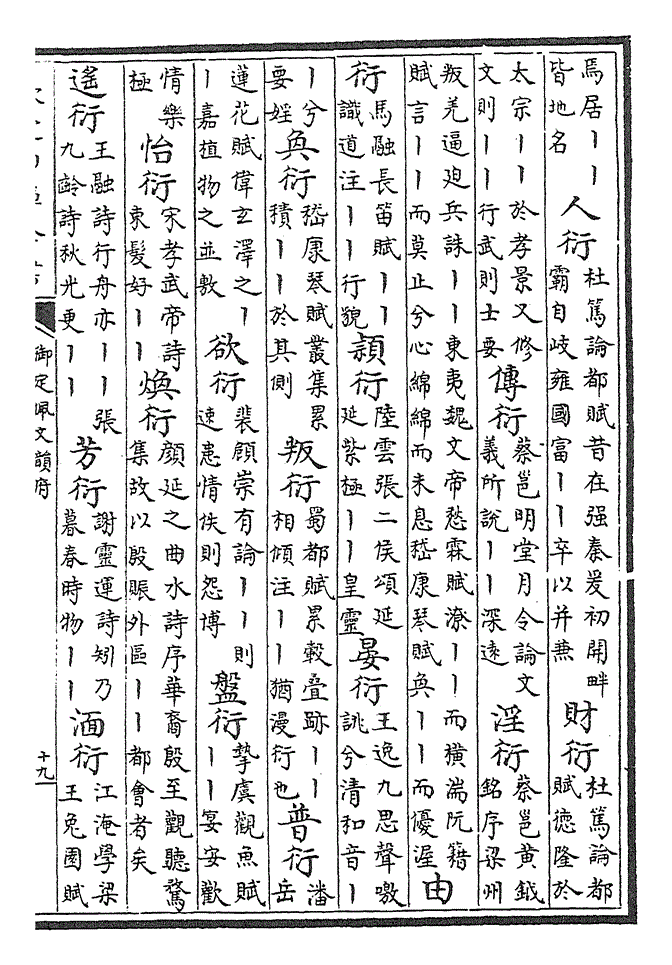 馬居丨丨皆地名 人衍 杜篤論都賦昔在强秦爰初開畔霸自岐雍國富丨丨卒以并兼 財衍 杜篤論都賦德隆於
太宗丨丨於孝景又修文則丨丨行武則士要 傳衍 蔡邕明堂月令論文義所說丨丨深遠 淫衍 蔡邕黄鉞銘序梁州
叛羌逼廹兵誅丨丨東夷魏文帝愁霖賦潦丨丨而横湍阮籍賦言丨丨而莫止兮心綿綿而未息嵇康琴賦奂丨丨而優渥 由
衍 馬融長笛賦丨丨識道注丨丨行貌 頴衍 陸雲張二侯頌延延紫極丨丨皇靈 晏衍 王逸九思聲噭誂兮清和音丨
丨兮要婬 奂衍 嵇康琴賦叢集累積丨丨於其側 叛衍 蜀都賦累轂疊跡丨丨相傾注丨丨猶漫衍也 普衍 潘岳
蓮花賦偉玄澤之丨丨嘉植物之並敷 欲衍 裴頠崇有論丨丨則速患情佚則怨博 盤衍 摯虞觀魚賦丨丨宴安歡
情樂極 怡衍 宋孝武帝詩束髮好丨丨 焕衍 顔延之曲水詩序華裔殷至觀聽驚集故以殷賑外區丨丨都會者矣
遙衍 王融詩行舟亦丨丨張九齡詩秋光更丨丨 芳衍 謝靈運詩矧乃暮春時物丨丨 湎衍 江淹學梁王兔園賦
御定佩文韻府
十九